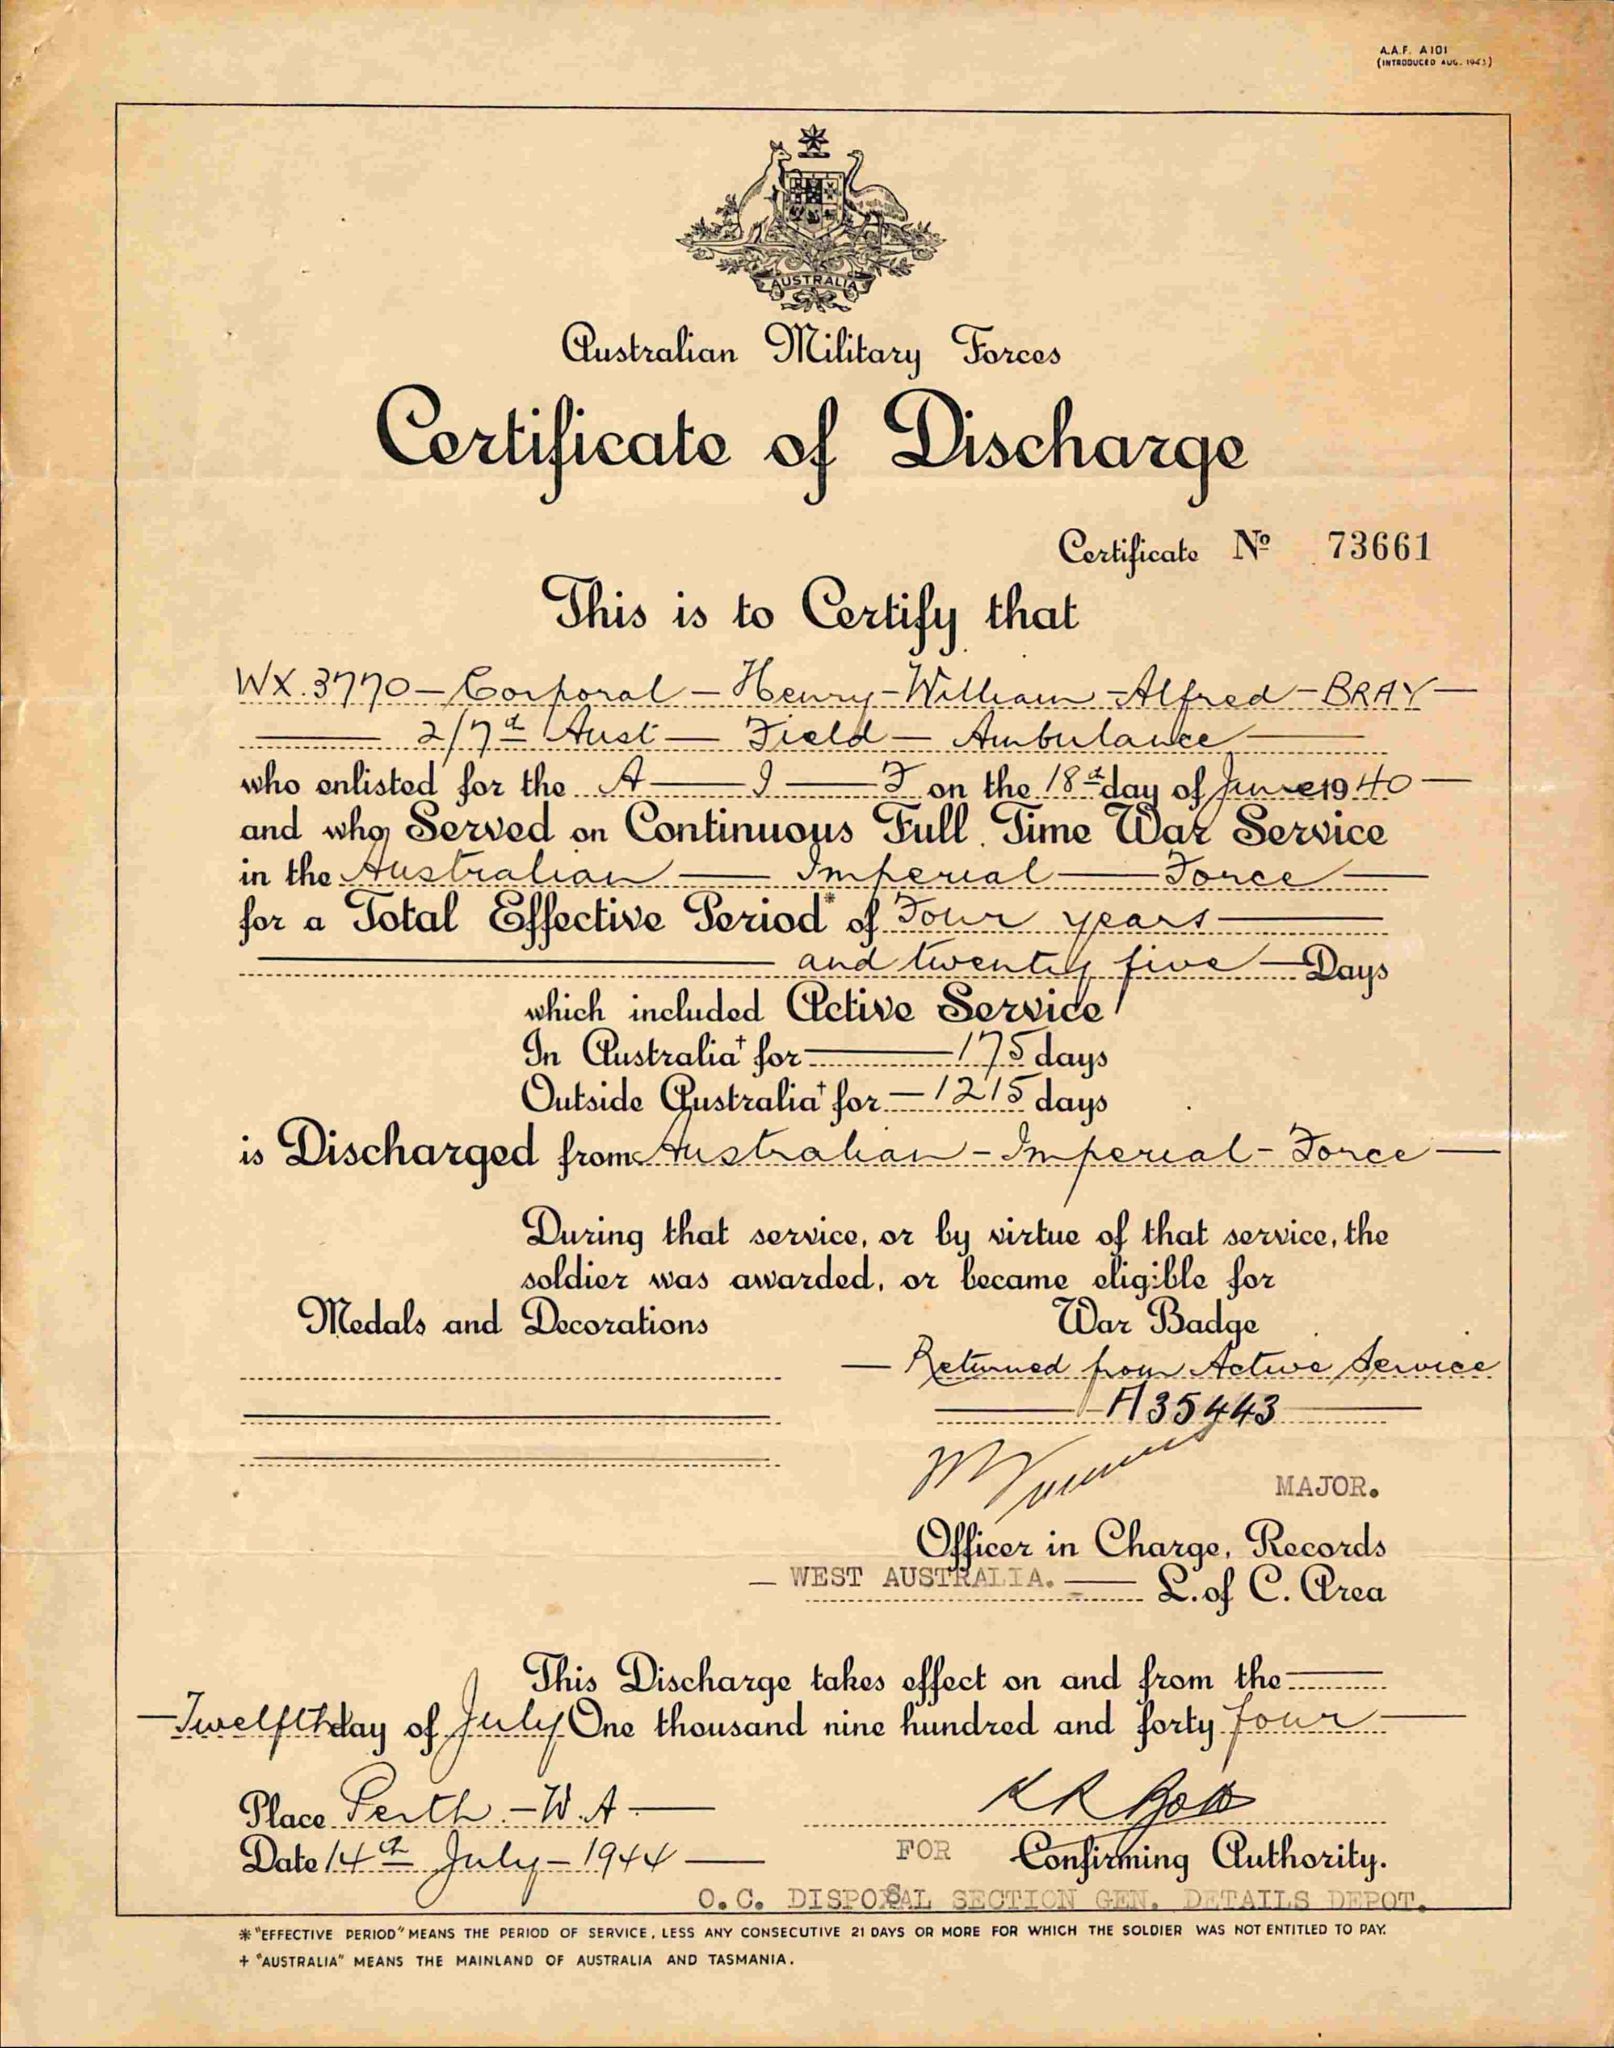 A.A.F. A101
(INTRODUCED AUG. 1943)
AUSTRALIA
Australian Military Forces
Certificate of Discharge
Certificate No 73661
This is to Certify that
WX.3770 – Corporal – Henry – William – Alfred – BRAY –
2/7th Aust – Field – Ambulance
who enlisted for the A — I — F on the 18th day of June 1940 –
and who Served on Continuous Full Time War Service
in the Australian — Imperial — Force —
for a Total Effective Period* of Four years
and twenty five — Days
which included Active Service
In Australia+ for — 175 days
Outside Australia+ for – 1215 days
is Discharged from Australian – Imperial – Force —
During that service, or by virtue of that service, the
soldier was awarded, or became eligible for
Medals and Decorations War Badge
— Returned from Active Service
A35443
MAJOR.
Officer in Charge, Records
— WEST AUSTRALIA. — L. of C. Area
This Discharge takes effect on and from the
— Twelfth day of July One thousand nine hundred and forty four —
Place Perth. – W.A —
Date 14th July – 1944 —
FOR Confirming Authority.
O.C. DISPOSAL SECTION GEN. DETAILS DEPOT.
* "EFFECTIVE PERIOD" MEANS THE PERIOD OF SERVICE, LESS ANY CONSECUTIVE 21 DAYS OR MORE FOR WHICH THE SOLDIER WAS NOT ENTITLED TO PAY.
+ "AUSTRALIA" MEANS THE MAINLAND OF AUSTRALIA AND TASMANIA.